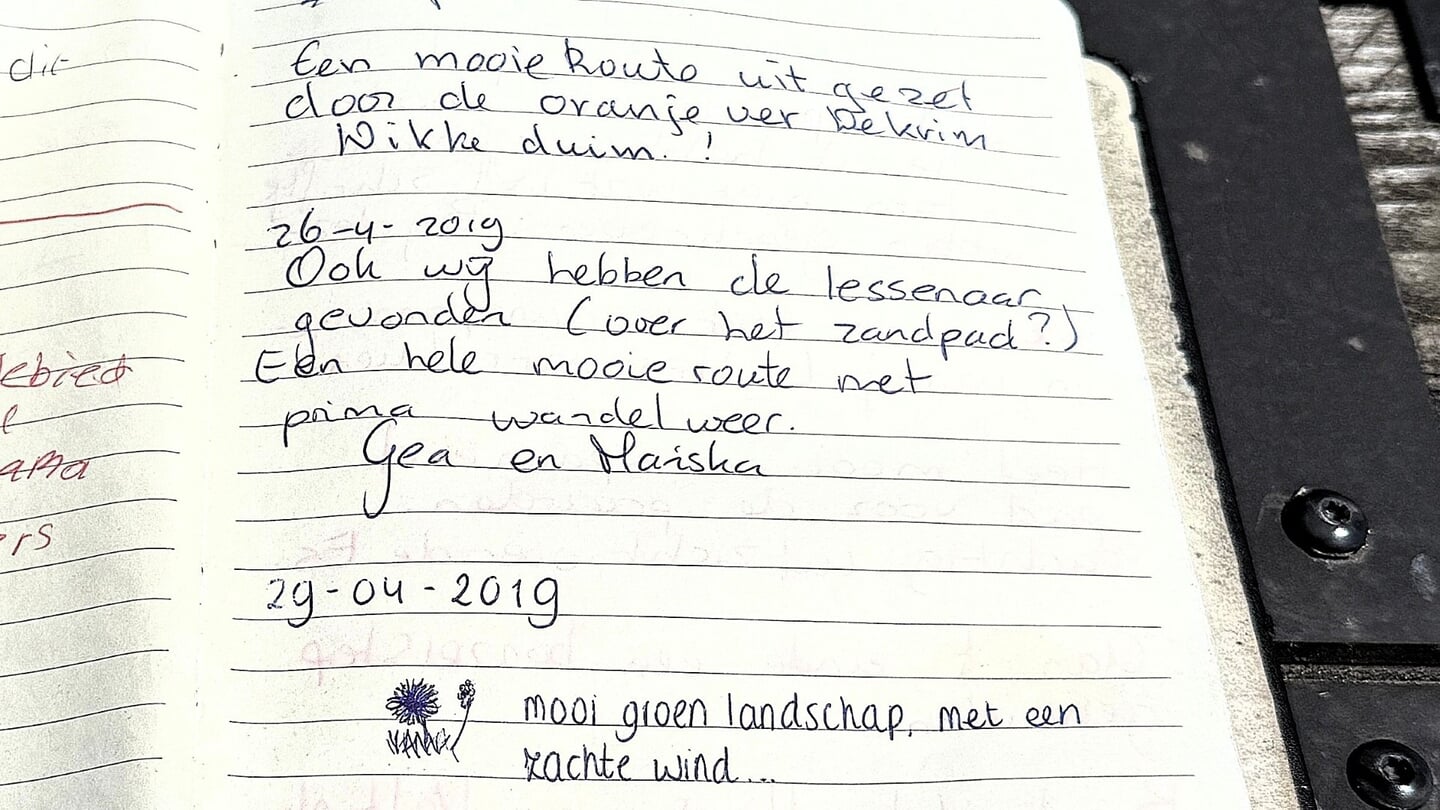 die
ebied
ers
Een mooie Route uit gezet
door de oranje ver Dekrim
Dikke duim.!
26-4-2019
Ook wij hebben de lessenaar
gevonden (over het zandpad?)
Een hele mooie route met
prima wandelweer.
Gea en Mariska
29-04-2019
mooi groen landschap, met een
zachte wind...